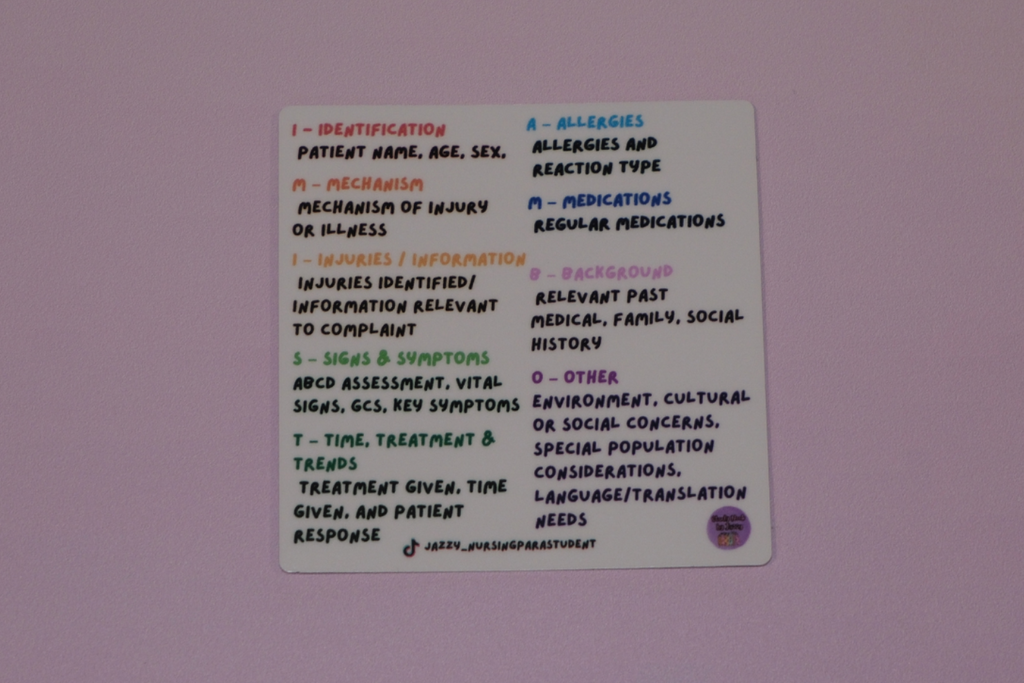 I - IDENTIFICATION
PATIENT NAME, AGE, SEX,
M - MECHANISM
MECHANISM OF INJURY
OR ILLNESS
I - INJURIES / INFORMATION
INJURIES IDENTIFIED/
INFORMATION RELEVANT
TO COMPLAINT
S - SIGNS & SYMPTOMS
ABCD ASSESSMENT, VITAL
SIGNS, GCS, KEY SYMPTOMS
T - TIME, TREATMENT &
TRENDS
TREATMENT GIVEN, TIME
GIVEN, AND PATIENT
RESPONSE
A - ALLERGIES
ALLERGIES AND
REACTION TYPE
M - MEDICATIONS
REGULAR MEDICATIONS
B - BACKGROUND
RELEVANT PAST
MEDICAL, FAMILY, SOCIAL
HISTORY
O - OTHER
ENVIRONMENT, CULTURAL
OR SOCIAL CONCERNS,
SPECIAL POPULATION
CONSIDERATIONS,
LANGUAGE/TRANSLATION
NEEDS
JAZZY_NURSINGPARASTUDENT